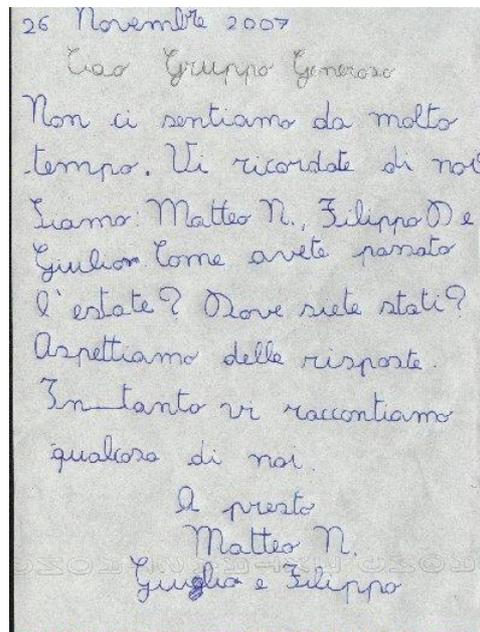 26 Novembre 2007
Ciao Gruppo Generoso
Non ci sentiamo da molto
tempo. Vi ricordate di noi?
Siamo: Matteo N., Filippo D e
Giulia. Come avete passato
l'estate? Dove siete stati?
Aspettiamo delle risposte.
In_tanto vi raccontiamo
qualcosa di noi.
A presto
Matteo N.
Giuglia e Filippo